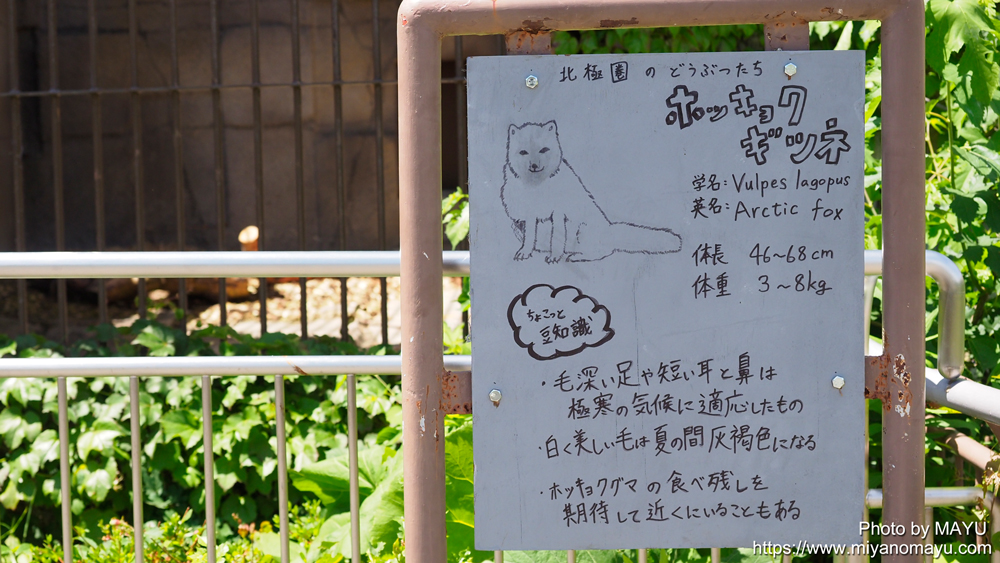 北極圏のどうぶつたち
ホッキョク
ギツネ
学名:Vulpes lagopus
英名:Arctic fox
体長 46~68cm
体重 3~8kg
ちょこっと
豆知識
・毛深い足や短い耳と鼻は
極寒の気候に適応したもの
・白く美しい毛は夏の間灰褐色になる
・ホッキョクグマの食べ残しを
期待して近くにいることもある
Photo by MAYU
https://www.miyanomayu.com